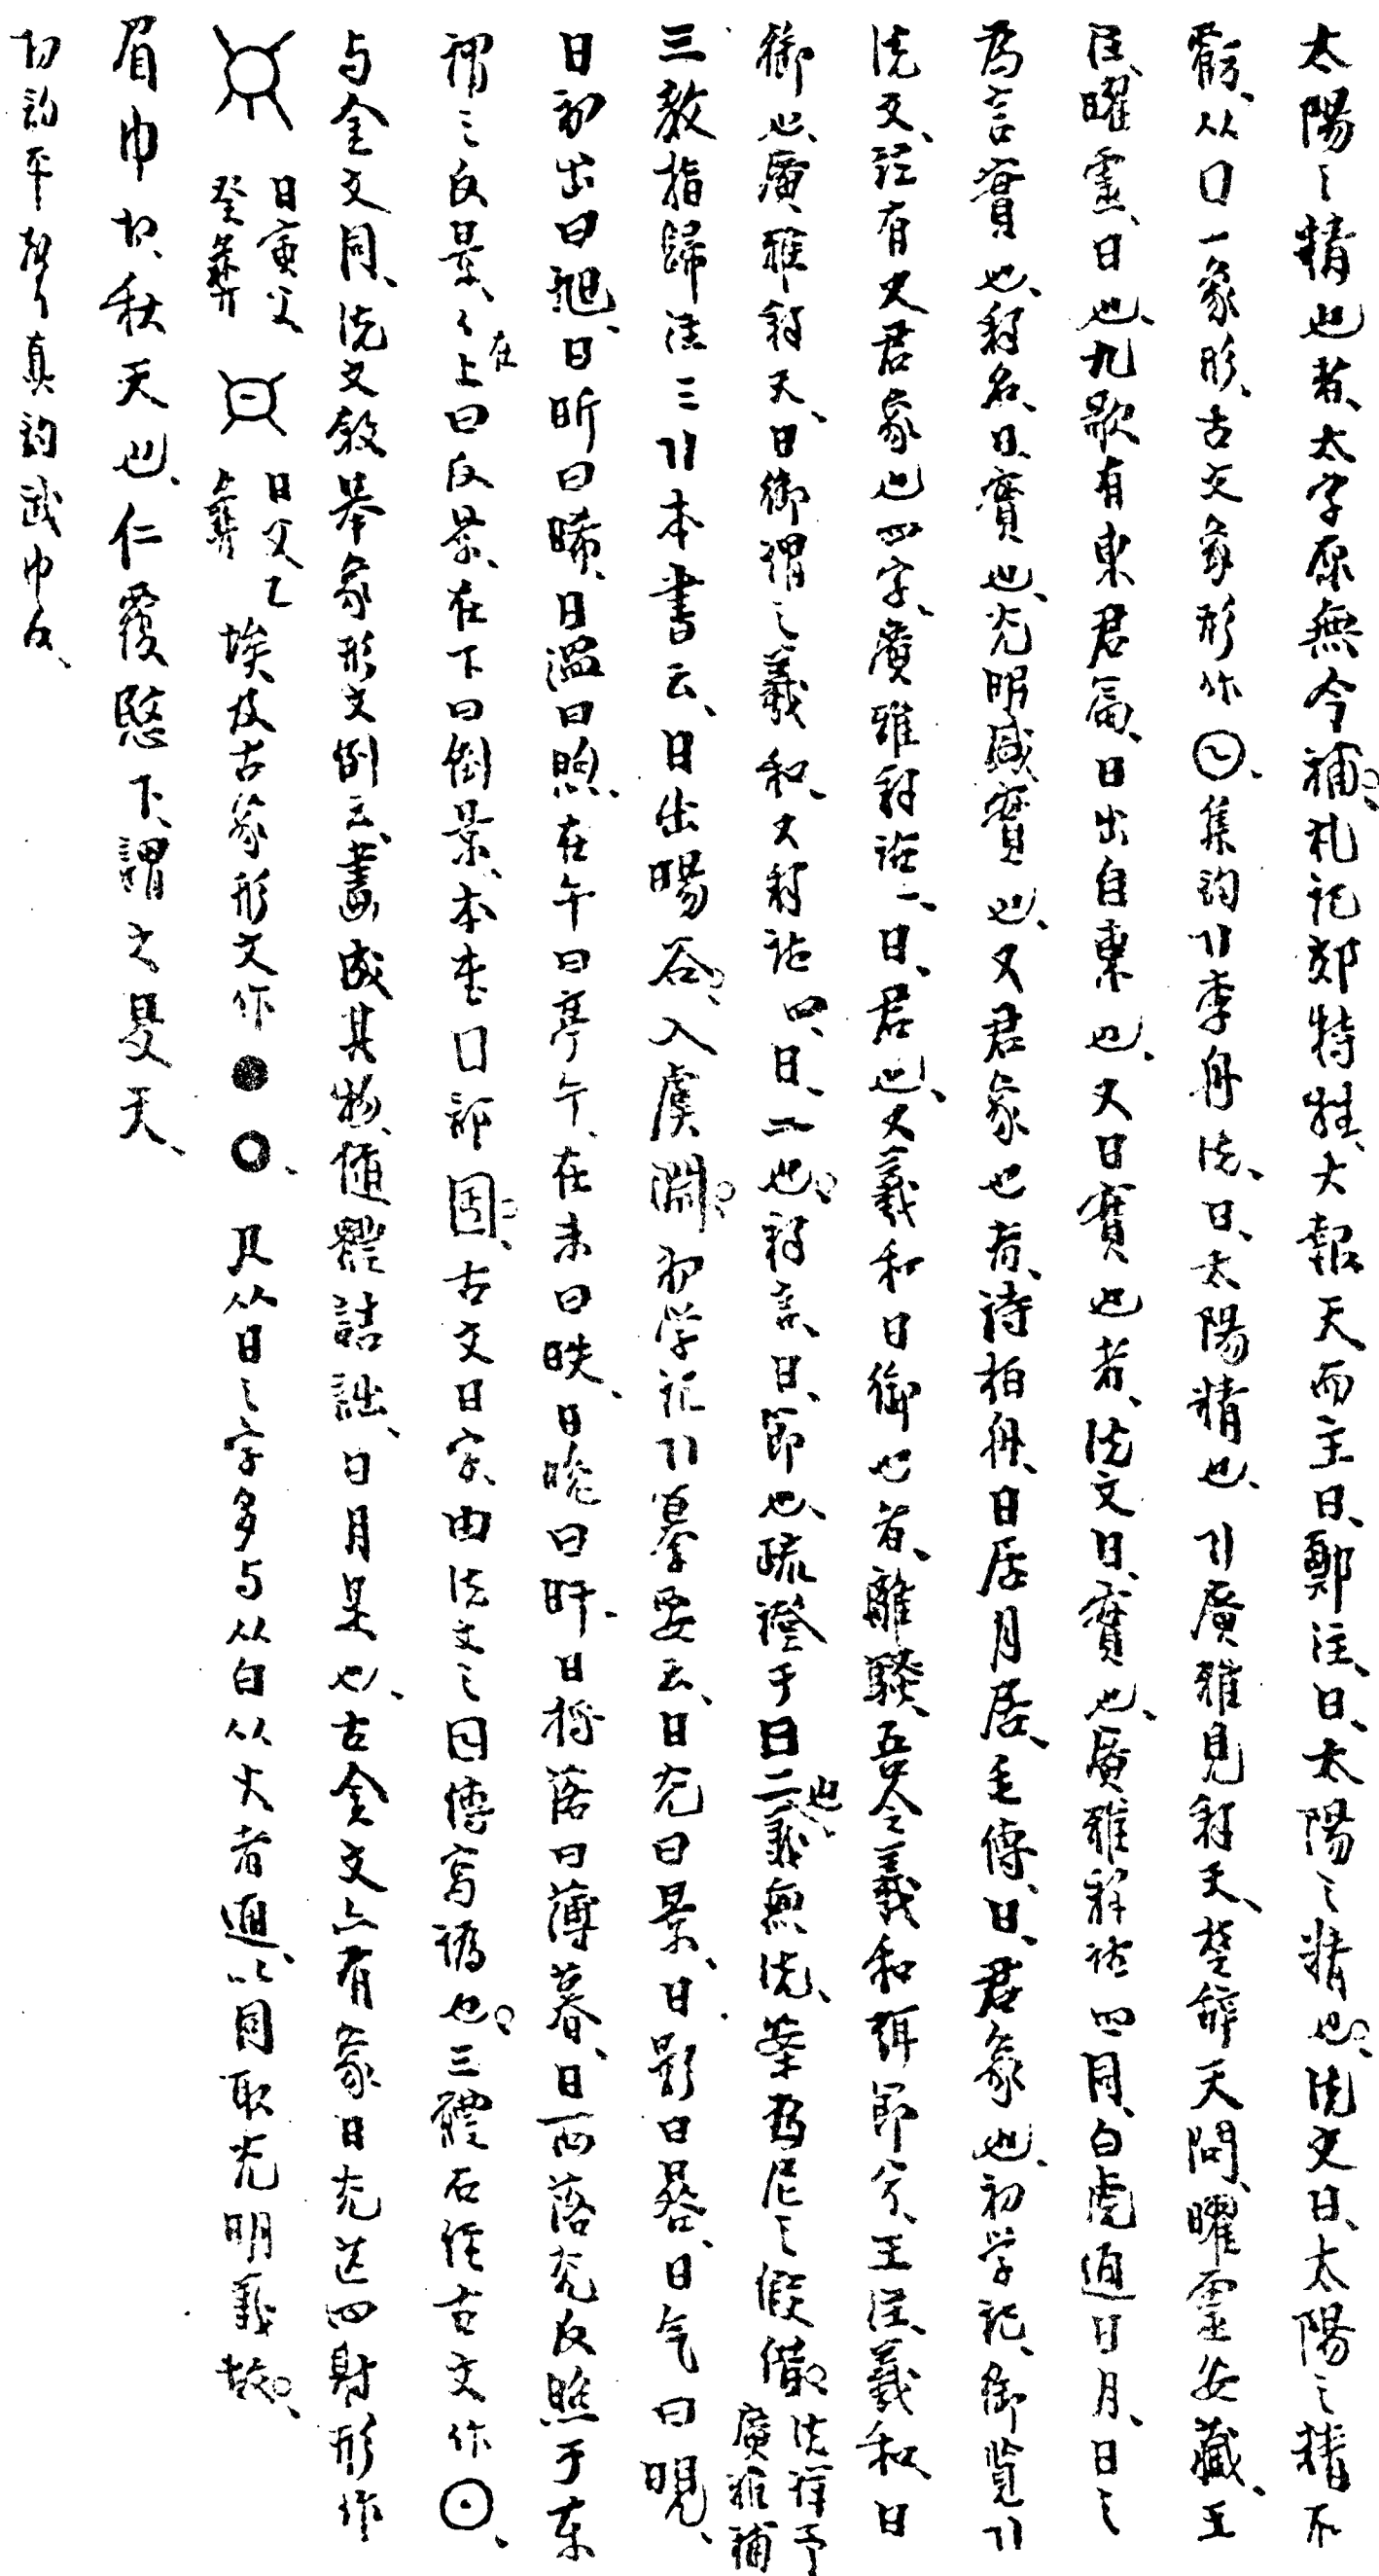 太陽之精也者、太字原無今補、礼記郊特牲、大報天而主日、鄭注、日、太陽之精也、説文日、太陽之精不
虧、从囗一象形、古文象形作、集韵引李舟説、日、太陽精也、引廣雅見釋天、楚辭天問、曜靈安藏、王
注、曜靈、日也、九歌有東君篇、日出自東也、又日實也者、説文日、實也、廣雅釋詁四同、白虎通日月、日之
為言實也、釋名、日、實也、光明盛實也、又君象也者、詩柏舟、日居月諸、毛傳、日、君象也、初学記、御覧引
説文、注有又君象也四字、廣雅釋詁一、日、君也、又羲和日御也者、離騷、吾令羲和弭節兮、王注、羲和、日
御也、廣雅釋天、日御謂之羲和、又釋詁四、日、二也、釋言、日、節也、疏證于日二也、義無説、葉為尼之假借、説詳予廣雅補
三教指歸注三引本書云、日出暘谷、入虞淵、初学記引纂要云、日光曰景、日影曰晷、日气曰晛、
日初出曰旭、日昕曰晞、日温曰煦、在午曰亭午、在未曰昳、日晚曰旰、日将落曰薄暮、日西落光反照于东
謂之反景、々在上曰反景、在下曰倒景、本書日部囻、古文日字、由説文之囸傳寫譌也、三體石經古文作⊙、
与金文同、説文敘举象形文例云、畫成其物、随體詰詘、日月是也、古金文亦有象日光芒四射形作
日寅父癸彝 日父乙彝 埃及古象形文作●○、 且从日之字多与从白从火者通、以同取光明義故、
眉巾切、秋天也、仁覆愍下、謂之旻天、
切韵平聲真韵武巾反、